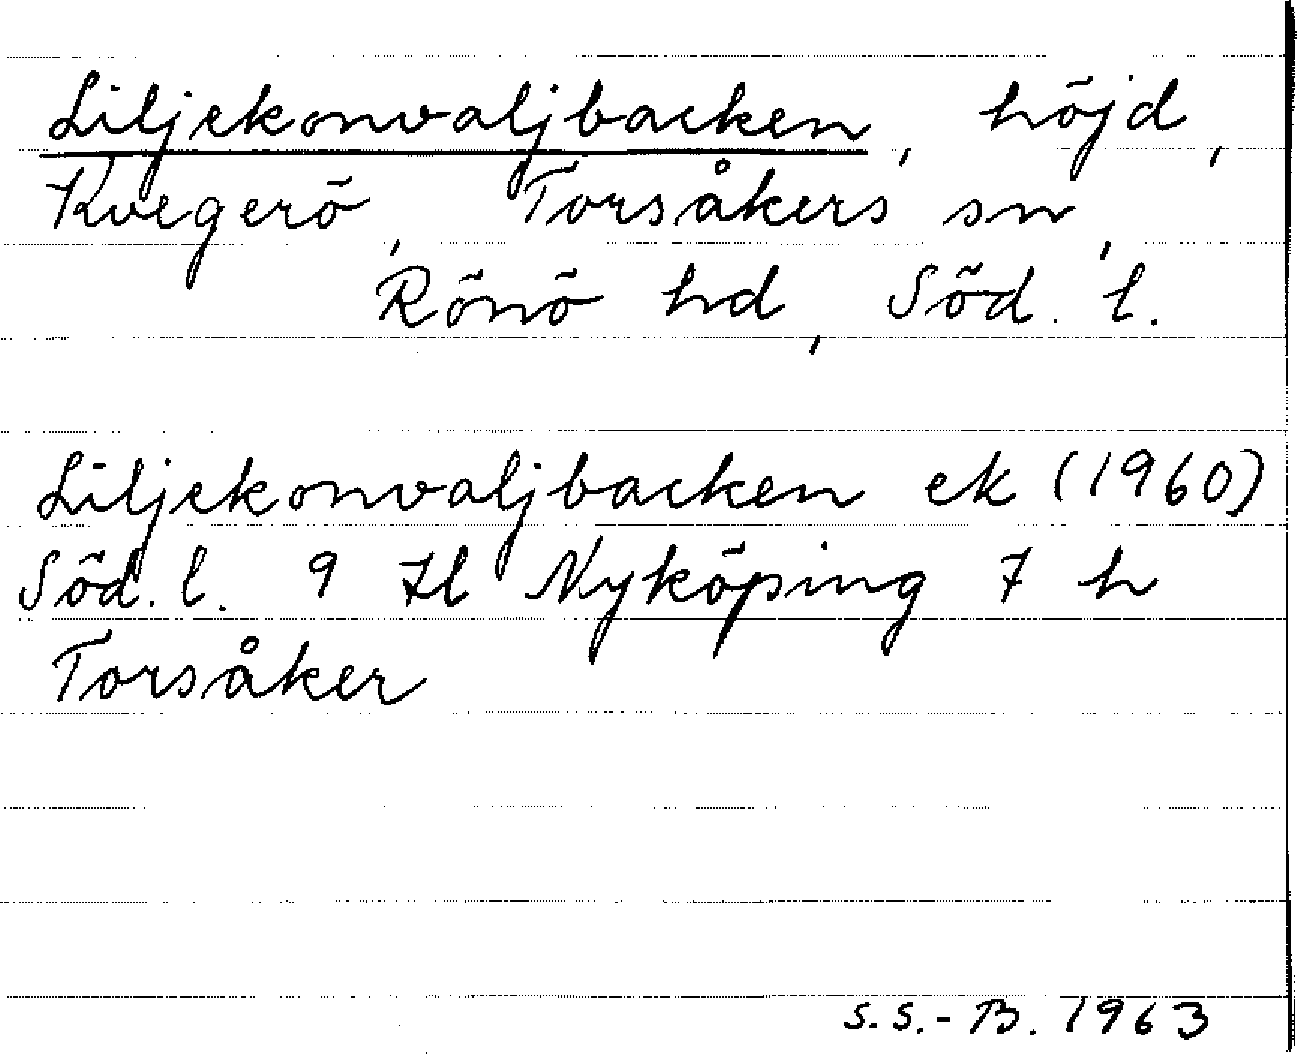 Liljekonvaljbacken, höjd,
Kvegerö, Torsåkers sn,
Rönö hd, Söd. l.
Liljekonvaljbacken ek (1960)
Söd. l. 9 Il Nyköping 7 h
Torsåker
S.S.-B. 1963